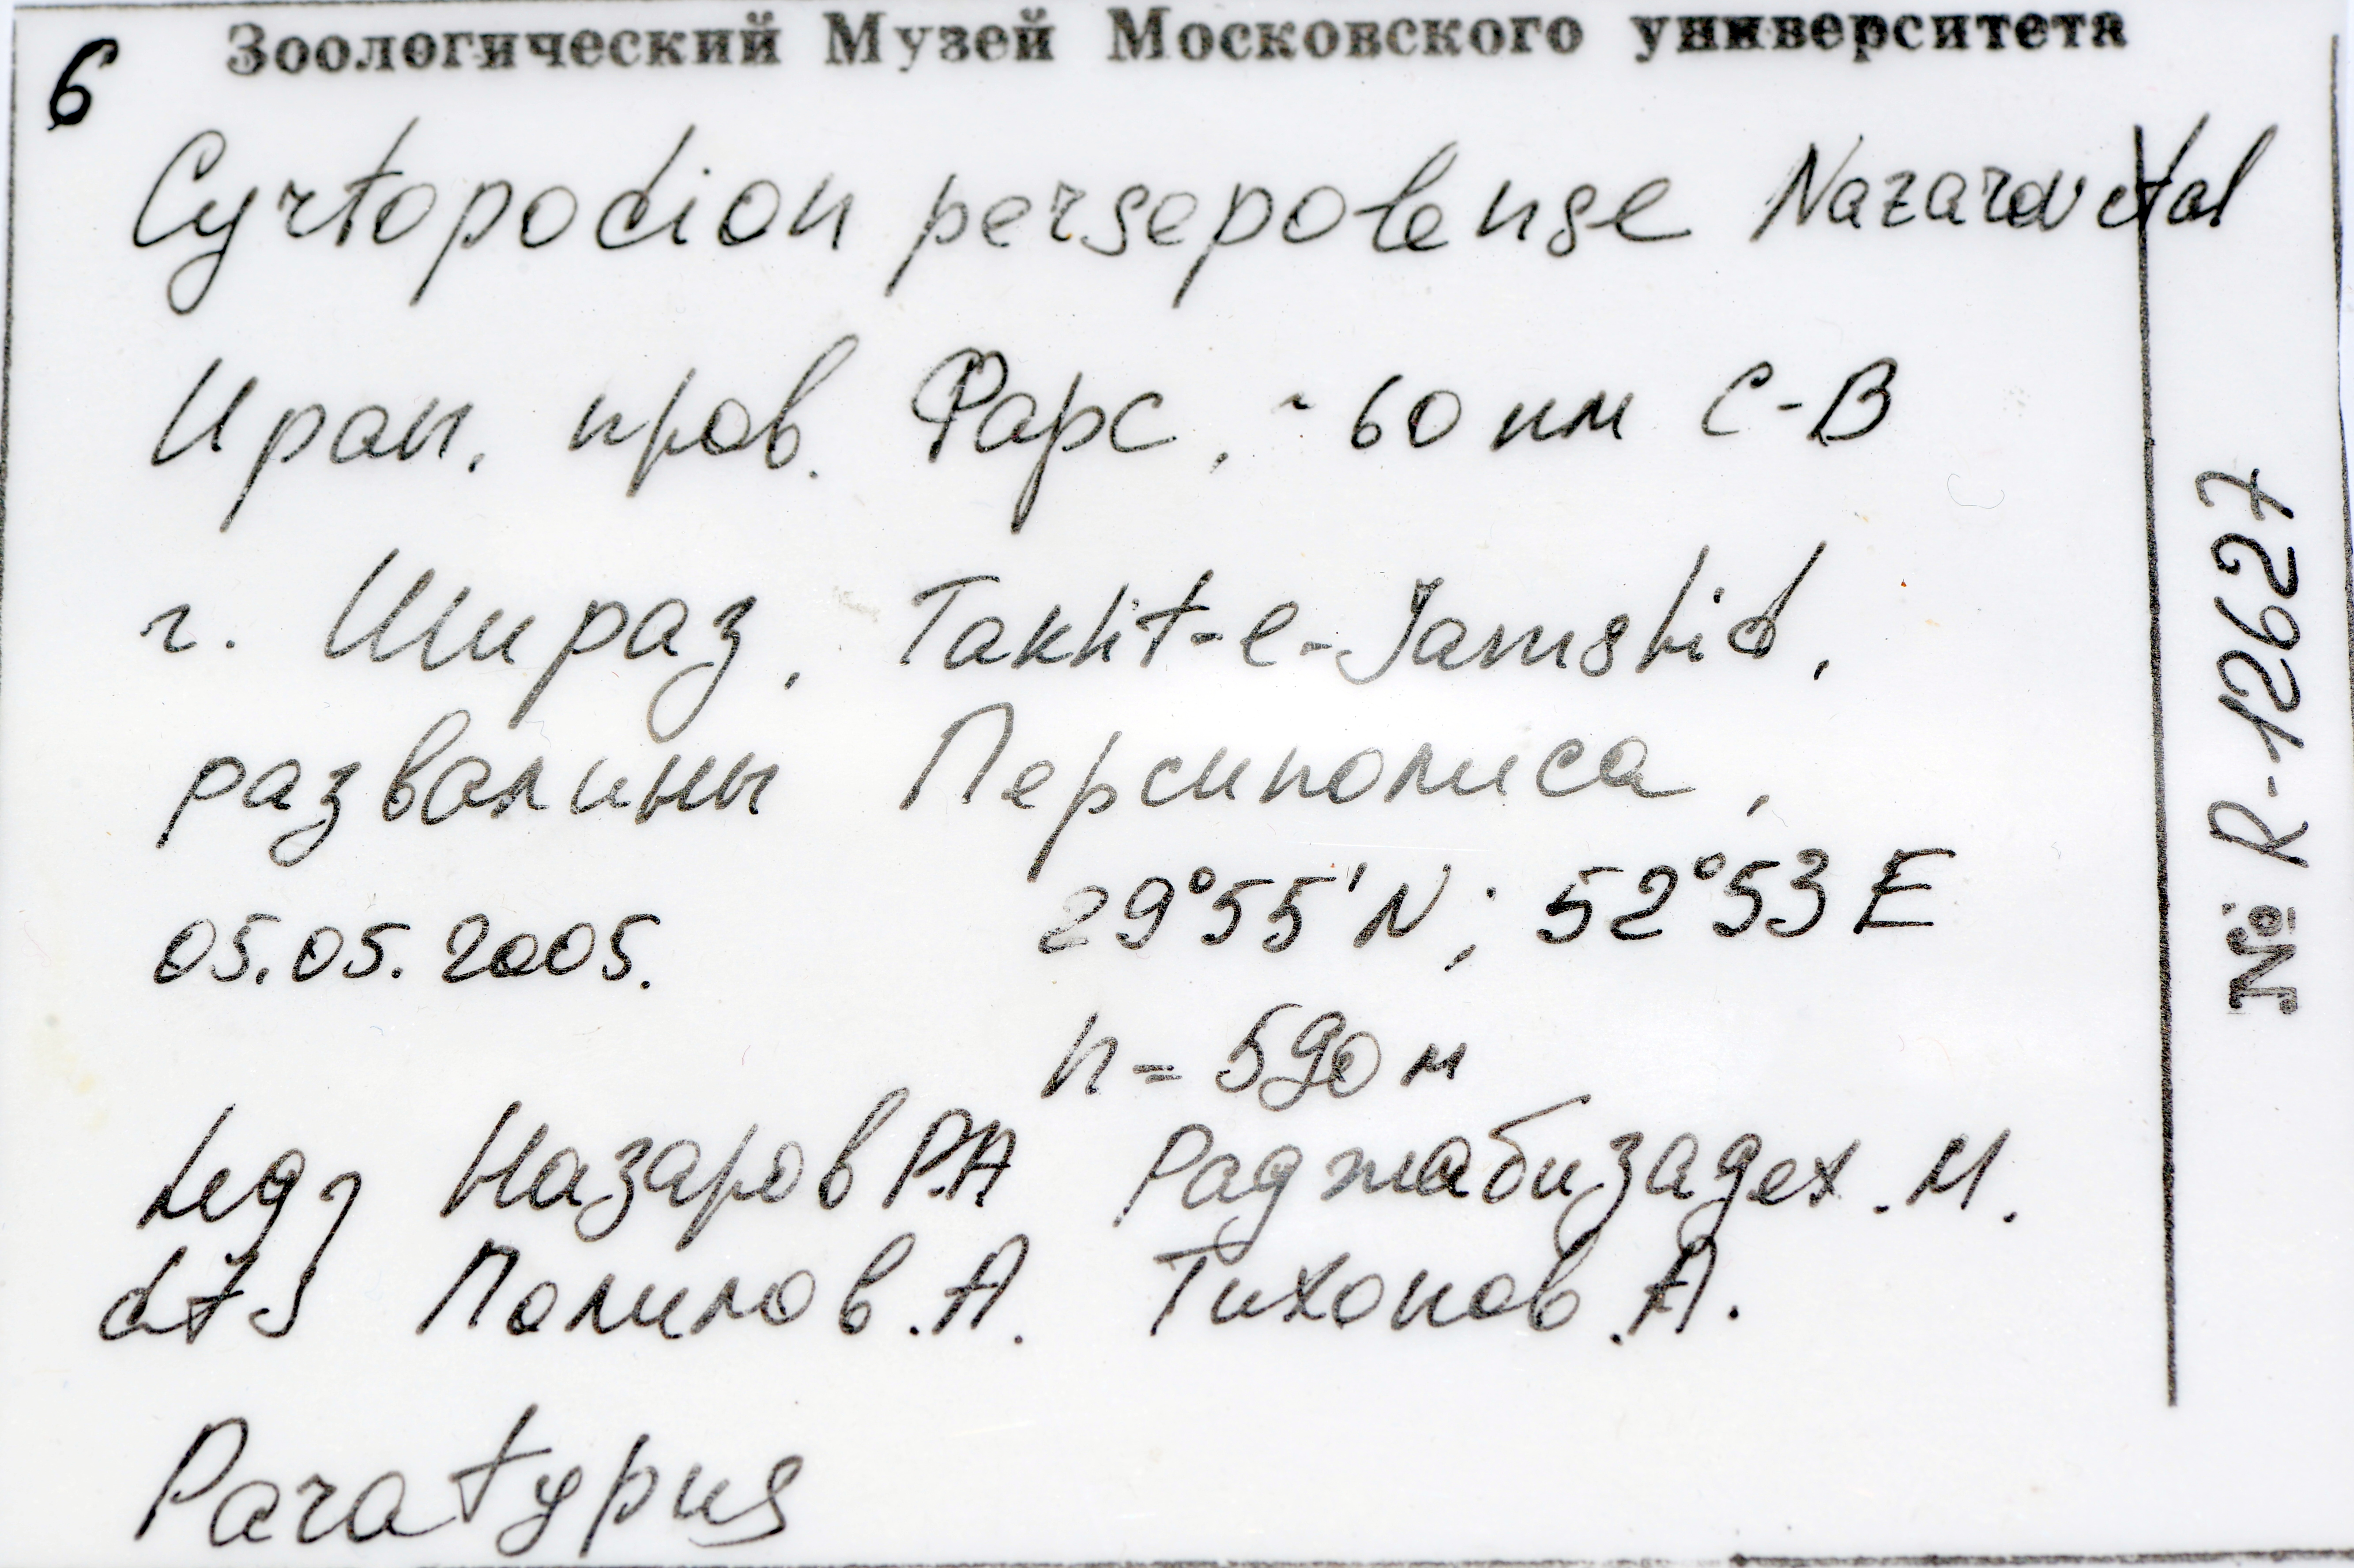 Зоологический Музей Московского университета
6
Cyrtopodion persepolense Nazarov et al
Иран, пров. Фарс, ~ 60 км С-В
г. Шираз, Takht-e-Jamshid,
развалины Персиполиса,
05.05.2005. 29°55'N; 52°53 E
h = 590 м
Leg Назаров Р.А Раджабизадех. М.
Полилов. А. Тихонов. А.
Paratypus
№ R-12627